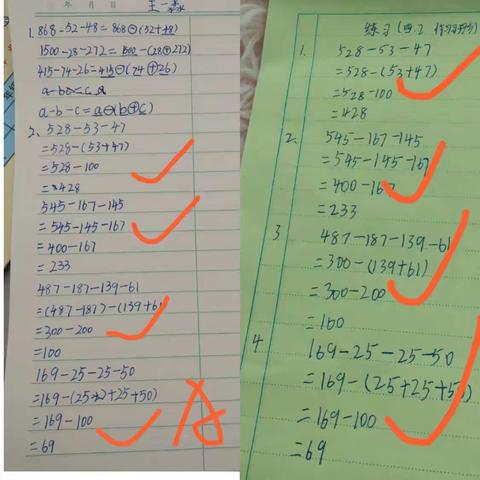 年 月 日
1. 868-52-48=868⊖(52+48)
1500-28-272=1500-(28⊕272)
415-74-26=415⊖(74⊕26)
a-b-c=a⊖(b⊕c)
2、528-53-47
=528-(53+47)
=528-100
=428
545-167-145
=545-145-167
=400-167
=233
487-187-139-61
=(487-187)-(139+61
=300-200
=100
169-25-25-50
=169-(25+25+50)
=169-100
=69
1. 528-53-47
=528-(53+47)
=528-100
=428
2、545-167-145
=545-145-167
=400-167
=233
3 487-187-139-61
=300-(139+61)
=300-200
=100
4 169-25-25-50
=169-(25+25+50)
=169-100
=69